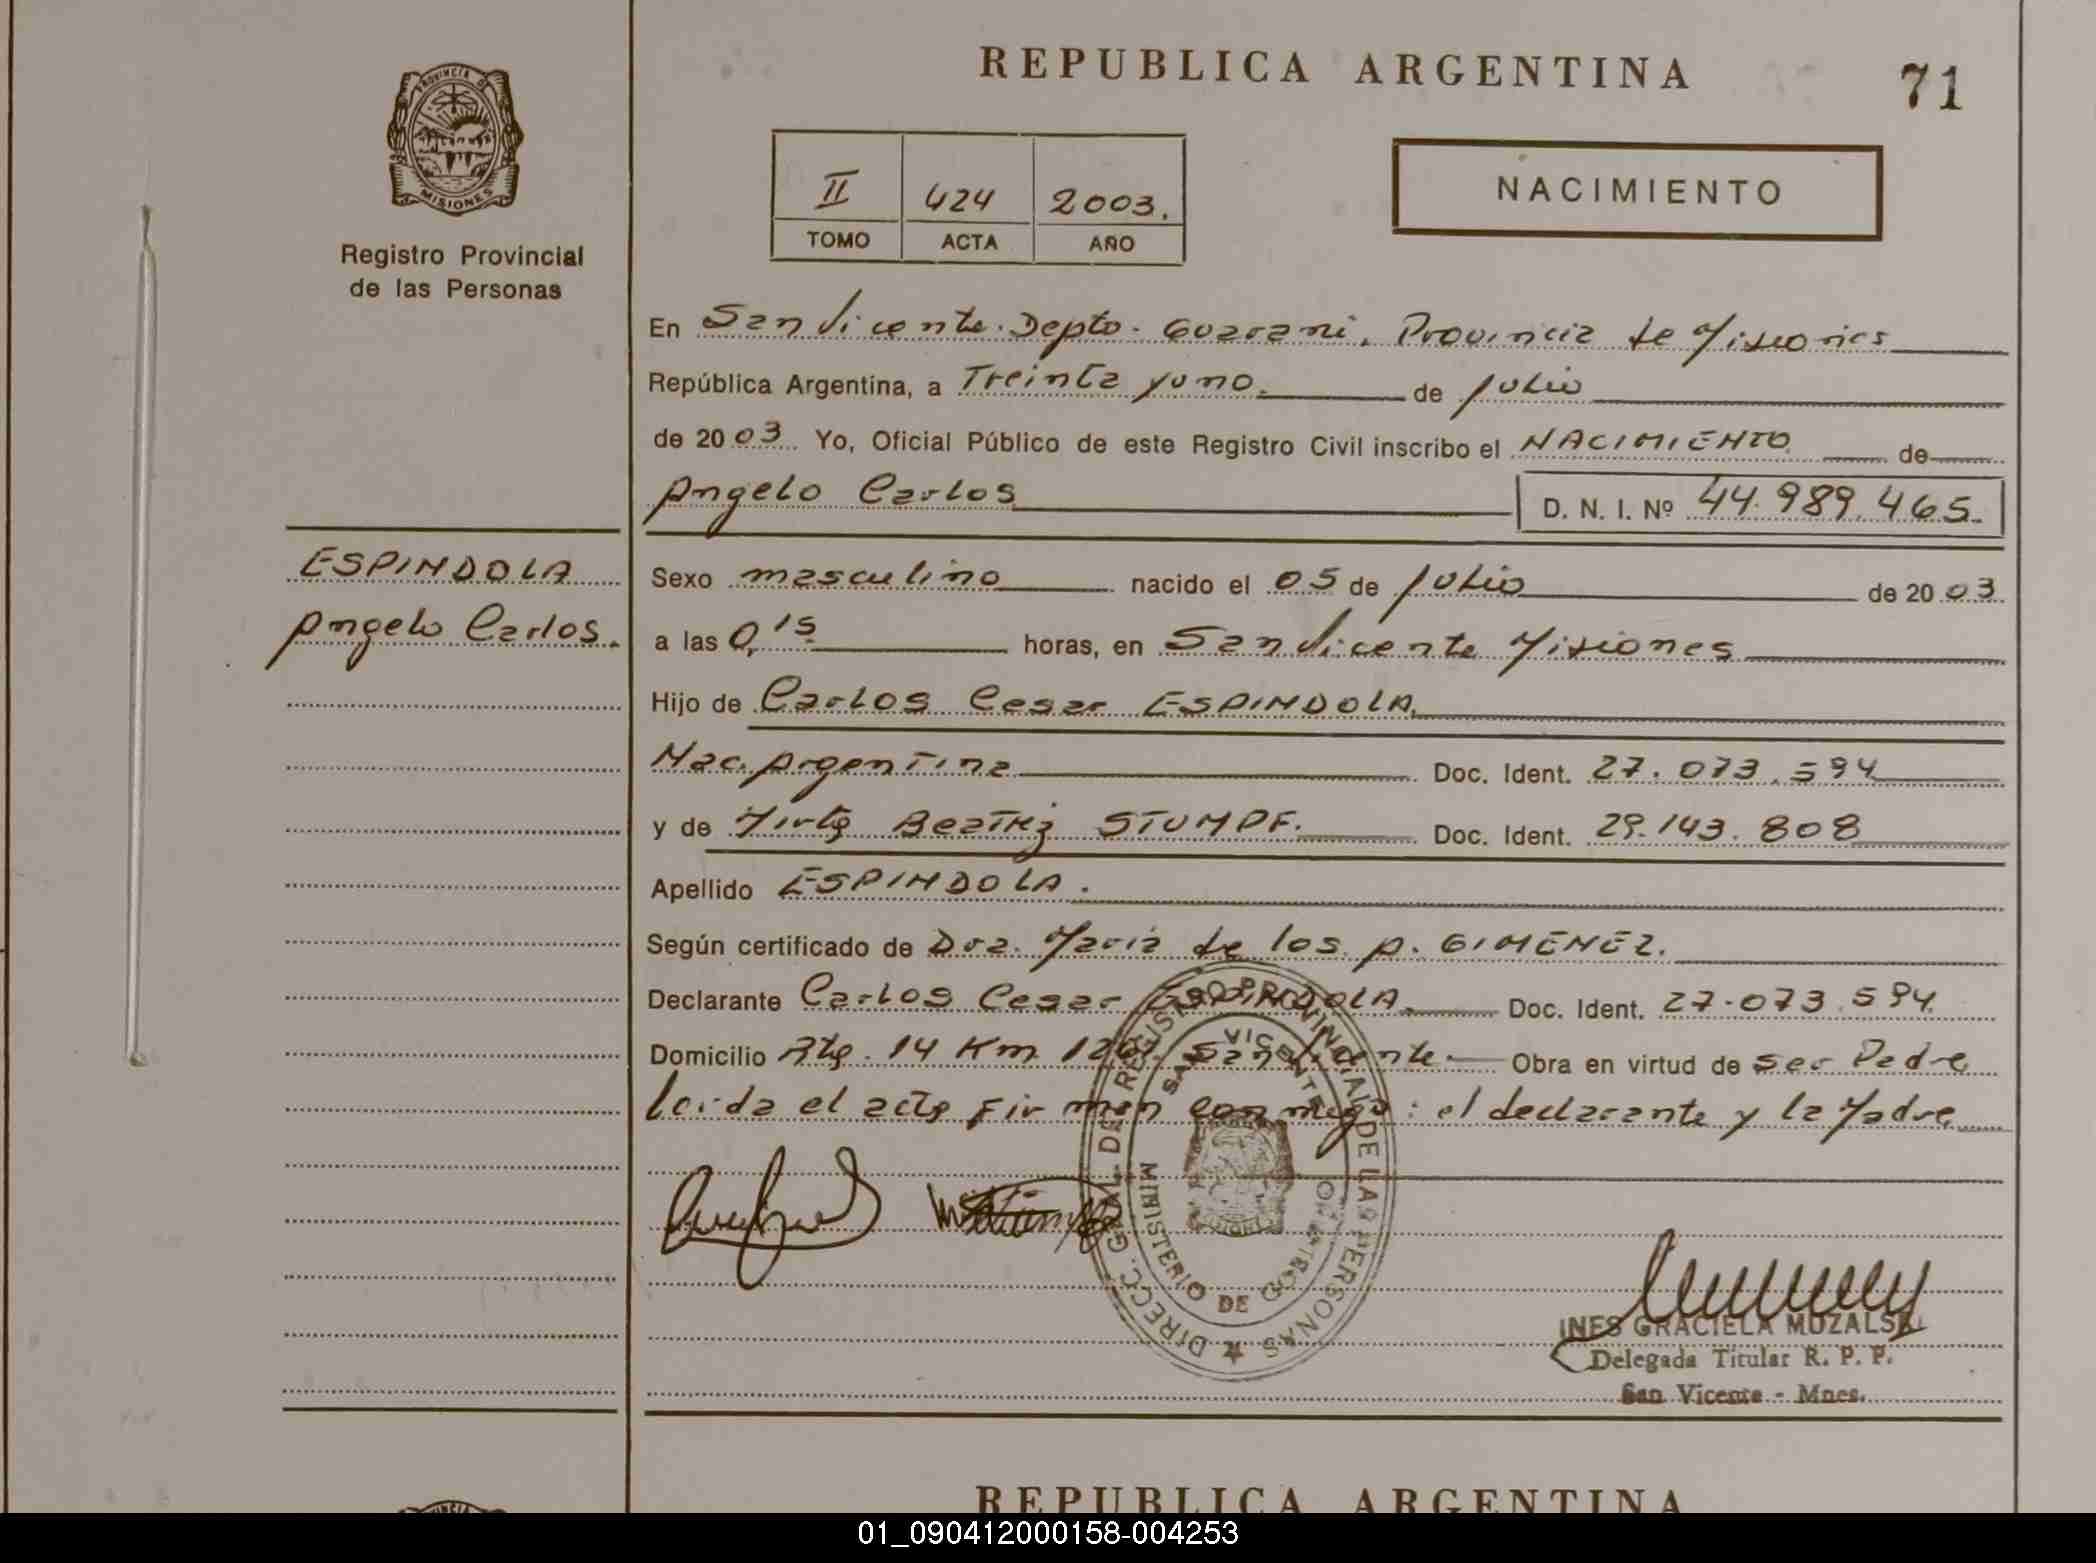 REPUBLICA ARGENTINA
71
PROVINCIA DE
MISIONES
Registro Provincial
de las Personas
II 424 2003.
TOMO ACTA AÑO
NACIMIENTO
En San Vicente. Depto. Guarani, Provincia de Misiones
República Argentina, a Treinta y uno. de Julio
de 2003 Yo, Oficial Público de este Registro Civil inscribo el NACIMIENTO de
Angelo Carlos D. N. I. Nº 44.989.465.
ESPINDOLA
Angelo Carlos.
Sexo masculino nacido el 05 de Julio de 2003
a las 0,15 horas, en San Vicente Misiones
Hijo de Carlos Cesar ESPINDOLA.
Nac. Argentina Doc. Ident. 27.073.594
y de Mirta Beatriz STUMPF. Doc. Ident. 29.143.808
Apellido ESPINDOLA.
Según certificado de Dra. Maria de los A. GIMENEZ.
Declarante Carlos Cesar ESPINDOLA Doc. Ident. 27.073.594.
Domicilio Rta. 14 Km San Vicente. Obra en virtud de ser Padre
Leida el acta firman conmigo: el declarante y la Madre
DIRECC. GRAL. DE REGISTRO PROVINCIAL DE LAS PERSONAS
SAN VICENTE
MINISTERIO DE GOBIERNO
INES GRACIELA MOZALSKI
Delegada Titular R. P. P.
San Vicente - Mnes.
REPUBLICA ARGENTINA
01_090412000158-004253